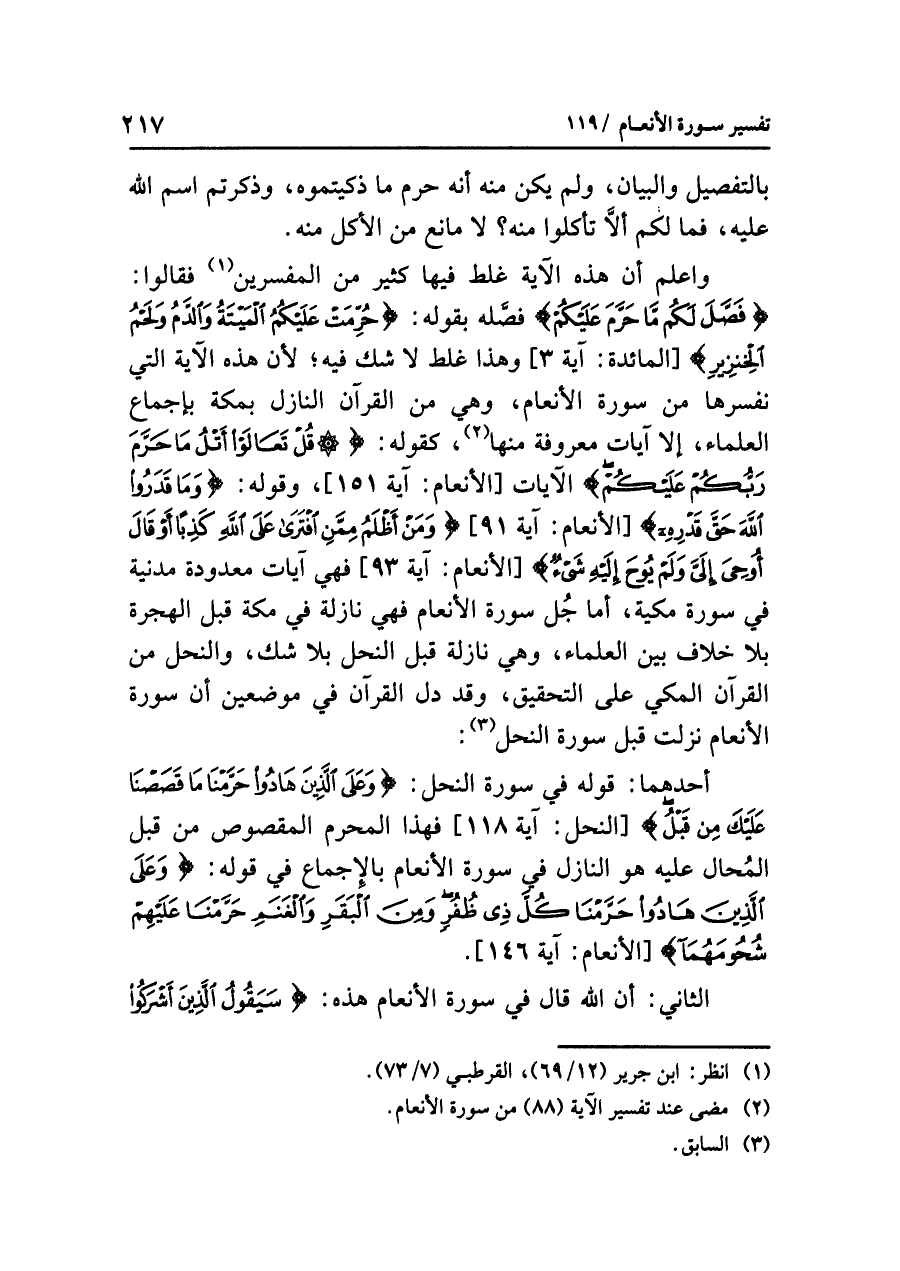 تفسير سـورة الأنعـام / ١١٩ ٢١٧
بالتفصيل والبيان، ولم يكن منه أنه حرم ما ذكيتموه، وذكرتم اسم الله
عليه، فما لكم ألَّا تأكلوا منه؟ لا مانع من الأكل منه.
واعلم أن هذه الآية غلط فيها كثير من المفسرين(١) فقالوا:
﴿ فَصَّلَ لَكُم مَّا حَرَّمَ عَلَيْكُمْ﴾ فصَّله بقوله: ﴿ حُرِّمَتْ عَلَيْكُمُ ٱلْمَيْتَةُ وَٱلدَّمُ وَلَحْمُ
ٱلْخِنزِيرِ ﴾ [المائدة: آية ٣] وهذا غلط لا شك فيه؛ لأن هذه الآية التي
نفسرها من سورة الأنعام، وهي من القرآن النازل بمكة بإجماع
العلماء، إلا آيات معروفة منها(٢)، كقوله: ﴿ ۞ قُلْ تَعَالَوْا۟ أَتْلُ مَا حَرَّمَ
رَبُّكُمْ عَلَيْكُمْ ۖ﴾ الآيات [الأنعام: آية ١٥١]، وقوله: ﴿وَمَا قَدَرُوا۟
ٱللَّهَ حَقَّ قَدْرِهِۦٓ﴾ [الأنعام: آية ٩١] ﴿ وَمَنْ أَظْلَمُ مِمَّنِ ٱفْتَرَىٰ عَلَى ٱللَّهِ كَذِبًا أَوْ قَالَ
أُوحِىَ إِلَىَّ وَلَمْ يُوحَ إِلَيْهِ شَىْءٌ﴾ [الأنعام: آية ٩٣] فهي آيات معدودة مدنية
في سورة مكية، أما جُل سورة الأنعام فهي نازلة في مكة قبل الهجرة
بلا خلاف بين العلماء، وهي نازلة قبل النحل بلا شك، والنحل من
القرآن المكي على التحقيق، وقد دل القرآن في موضعين أن سورة
الأنعام نزلت قبل سورة النحل(٣):
أحدهما: قوله في سورة النحل: ﴿ وَعَلَى ٱلَّذِينَ هَادُوا۟ حَرَّمْنَا مَا قَصَصْنَا
عَلَيْكَ مِن قَبْلُ ۖ﴾ [النحل: آية ١١٨] فهذا المحرم المقصوص من قبل
المُحال عليه هو النازل في سورة الأنعام بالإجماع في قوله: ﴿ وَعَلَى
ٱلَّذِينَ هَادُوا۟ حَرَّمْنَا كُلَّ ذِى ظُفُرٍ ۖ وَمِنَ ٱلْبَقَرِ وَٱلْغَنَمِ حَرَّمْنَا عَلَيْهِمْ
شُحُومَهُمَآ﴾ [الأنعام: آية ١٤٦].
الثاني: أن الله قال في سورة الأنعام هذه: ﴿ سَيَقُولُ ٱلَّذِينَ أَشْرَكُوا۟
(١) انظر: ابن جرير (٦٩/١٢)، القرطبـي (٧٣/٧).
(٢) مضى عند تفسير الآية (٨٨) من سورة الأنعام.
(٣) السابق.